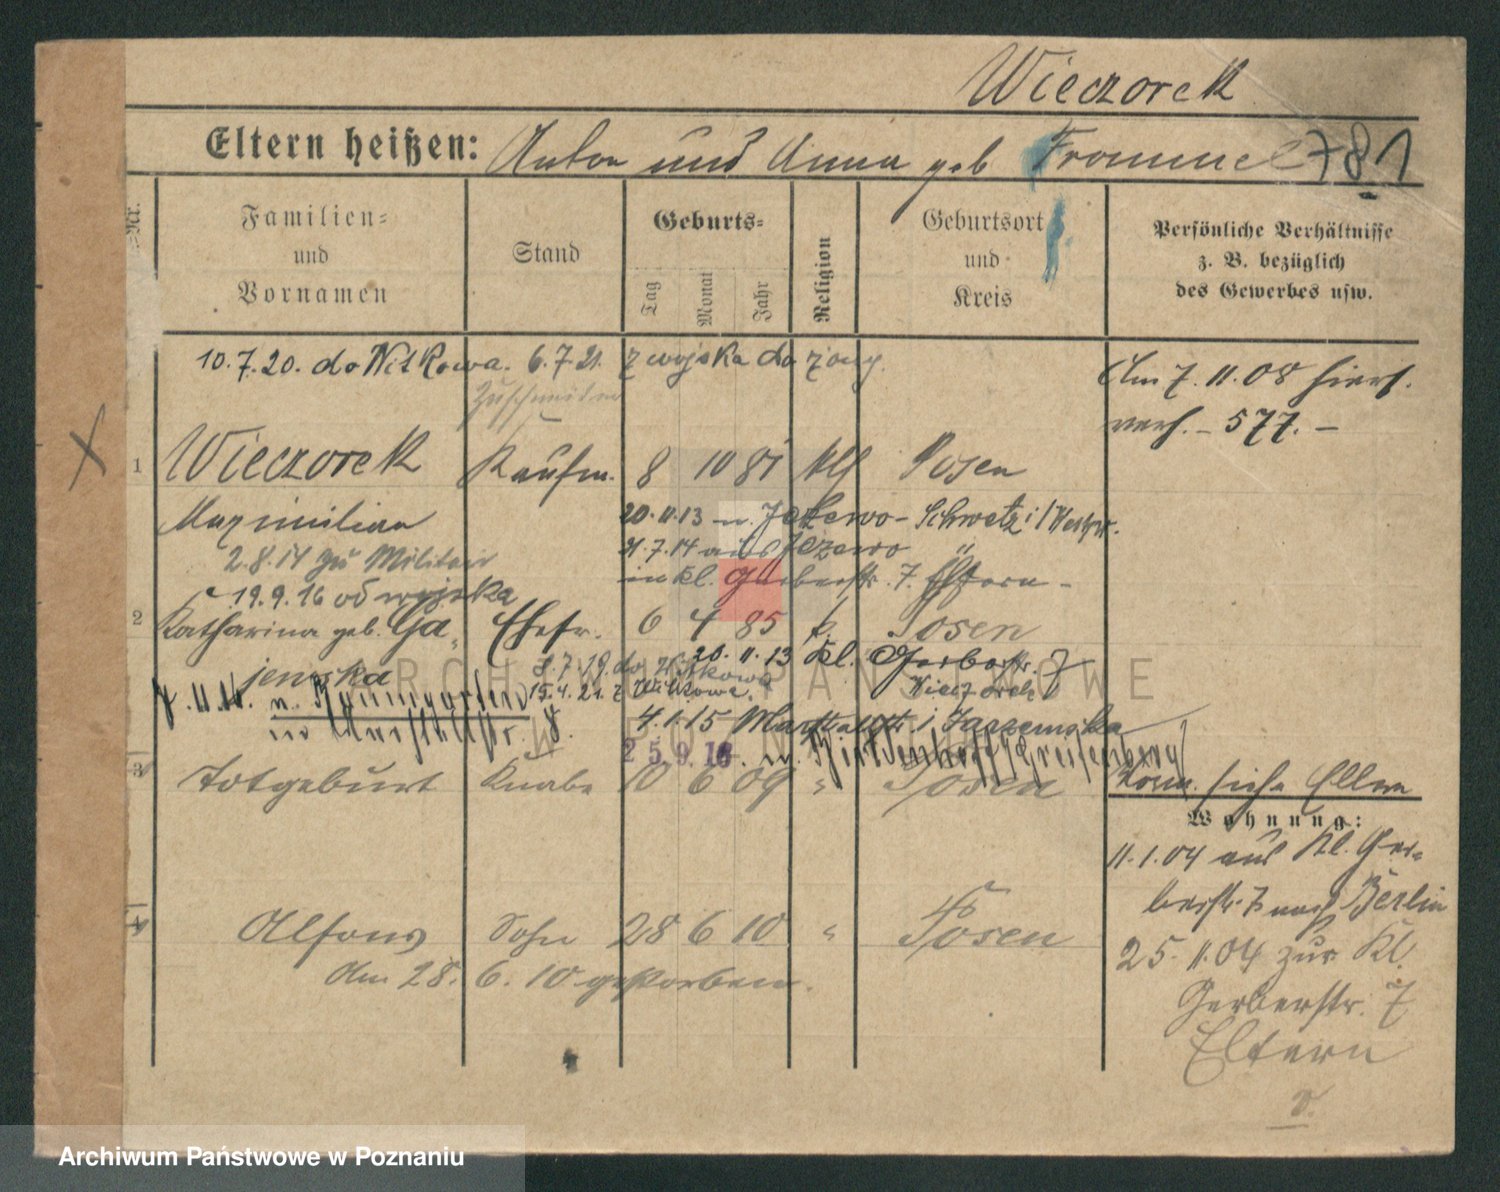 Wieczorek
Eltern heißen: Anton und Anna geb Frommel 781
Nr.
Familien-
und
Vornamen
Stand
Geburts-
Tag
Monat
Jahr
Religion
Geburtsort
und
Kreis
Persönliche Verhältnisse
z. B. bezüglich
des Gewerbes usw.
10.7.20. do Witkowa. 6.7.21. z wojska do żony.
Am 7.11.08 hier
verh. - 577. -
1 Wieczorek Kaufm. 8 10 81 Klf Posen
Maximilian 20.11.13 n. Jeżewo - Schwetz i/Westpr.
2.8.14 zu Militair 21.7.14 aus Jezewo "
in kl. Gerberstr. 7. Eltern -
19.9.16 od wojska
2 Katharina geb. Ga- Ehefr. 6 4 85 k. Posen
jewska 20.11.13 Kl. Gerberstr. 7
8.7.19. do Witkowa Wieczorek
15.4.21. z Witkowa.
7.11.16. n. Baumgarten
4.1.15 Marstallstr. i Jarzemska
25.9.16. n.
3 Totgeburt Knabe 10 6 09 " Posen
Vorm. siehe Eltern
Wohnung:
11.1.04 aus Kl. Ger-
berstr. 7 nach Berlin
4 Alfons Sohn 28 6 10 " Posen
am 28. 6. 10 gestorben.
25.11.04 zur Kl.
Gerberstr. 7
Eltern
ARCHIWUM PAŃSTWOWE
W POZNANIU
Archiwum Państwowe w Poznaniu